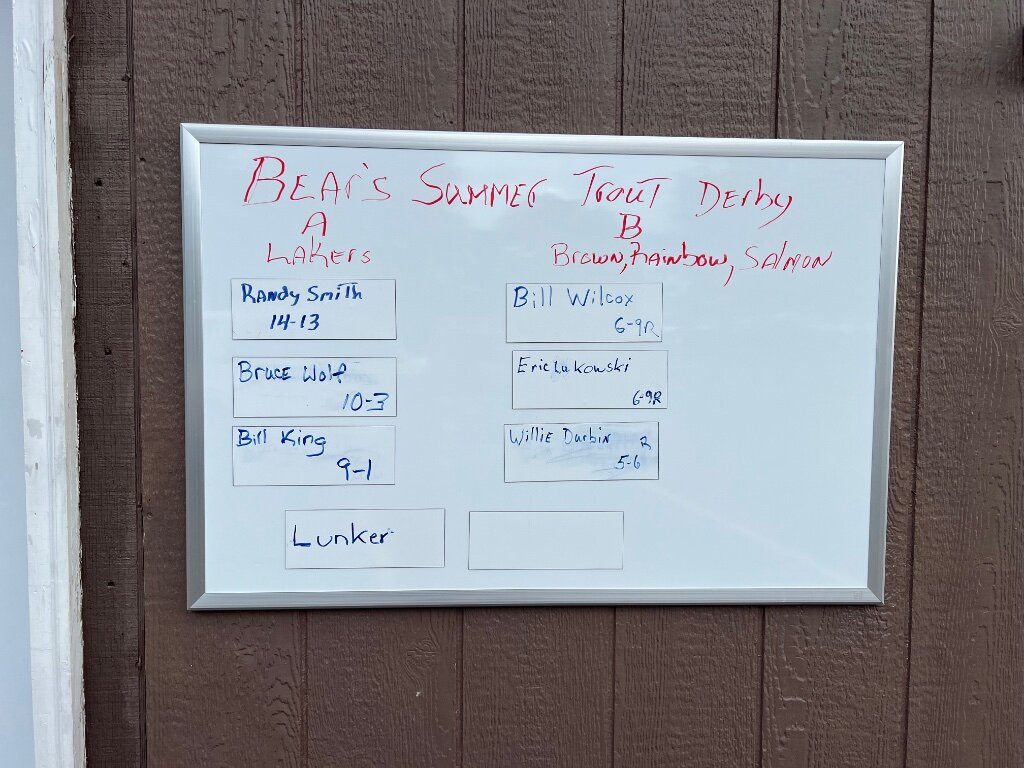 BEAr's SUMMER TrouT DErby
A
LAKErs
B
Brown, Rainbow, SAlMON
RANdy SmiTh
14-13
Bruce Wolf
10-3
Bill King
9-1
Bill Wilcox
6-9R
Eric Lukowski
6-9R
WilliE Durbin R
5-6
Lunker